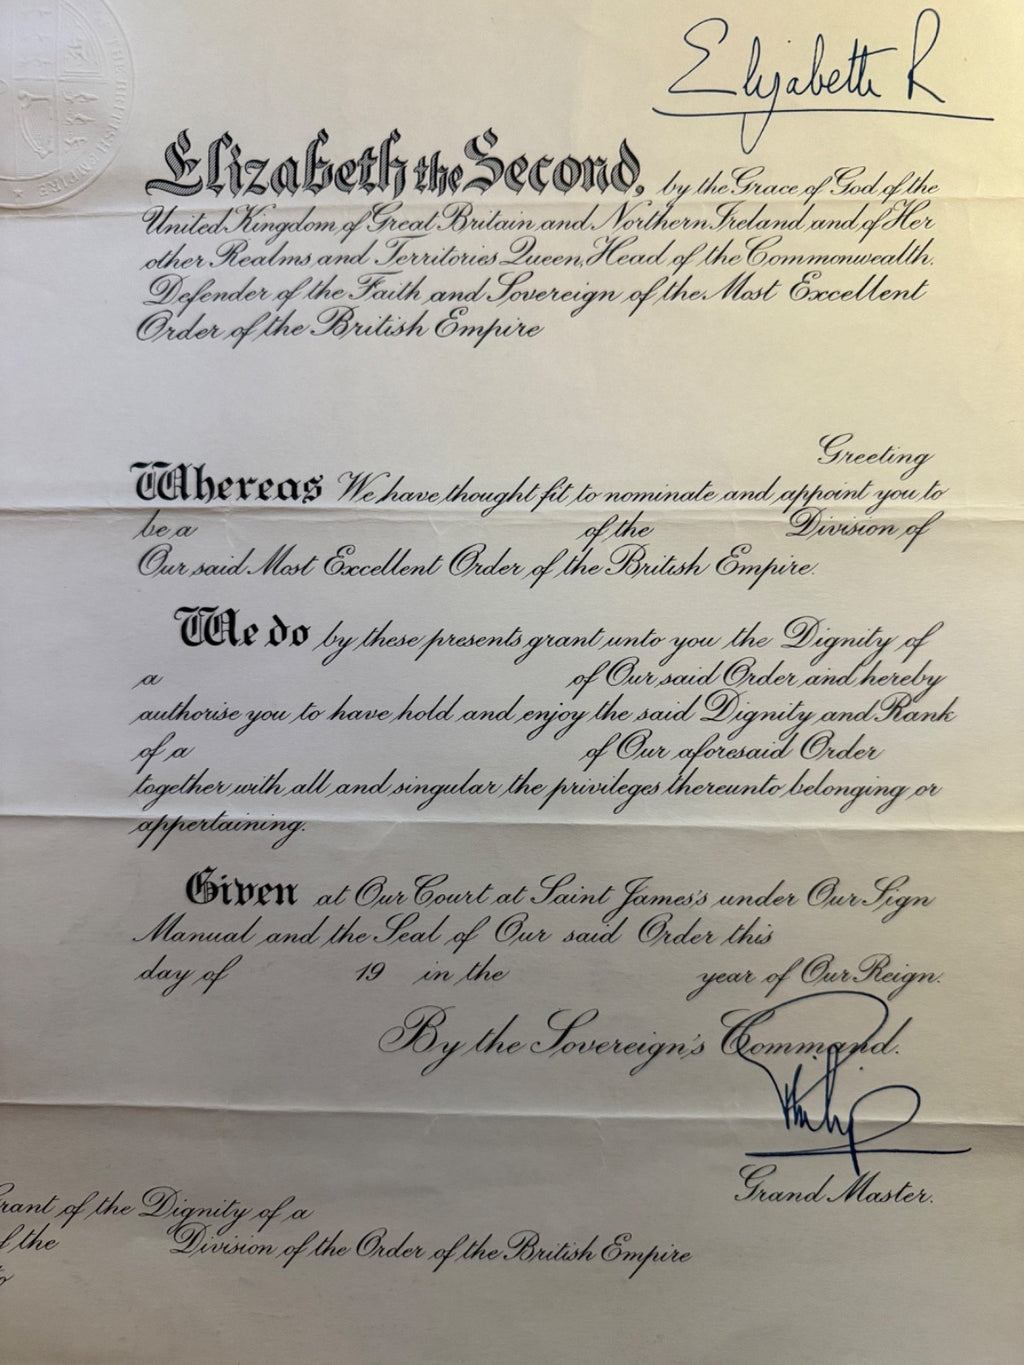 Elizabeth R
BRITISH EMPIRE
Elizabeth the Second, by the Grace of God of the
United Kingdom of Great Britain and Northern Ireland and of Her
other Realms and Territories Queen, Head of the Commonwealth,
Defender of the Faith and Sovereign of the Most Excellent
Order of the British Empire
Greeting
Whereas We have thought fit to nominate and appoint you to
be a of the Division of
Our said Most Excellent Order of the British Empire.
We do by these presents grant unto you the Dignity of
a of Our said Order and hereby
authorise you to have hold and enjoy the said Dignity and Rank
of a of Our aforesaid Order
together with all and singular the privileges thereunto belonging or
appertaining.
Given at Our Court at Saint James's under Our Sign
Manual and the Seal of Our said Order this
day of 19 in the year of Our Reign.
By the Sovereign's Command.
Philip
Grand Master.
rant of the Dignity of a
f the Division of the Order of the British Empire
to